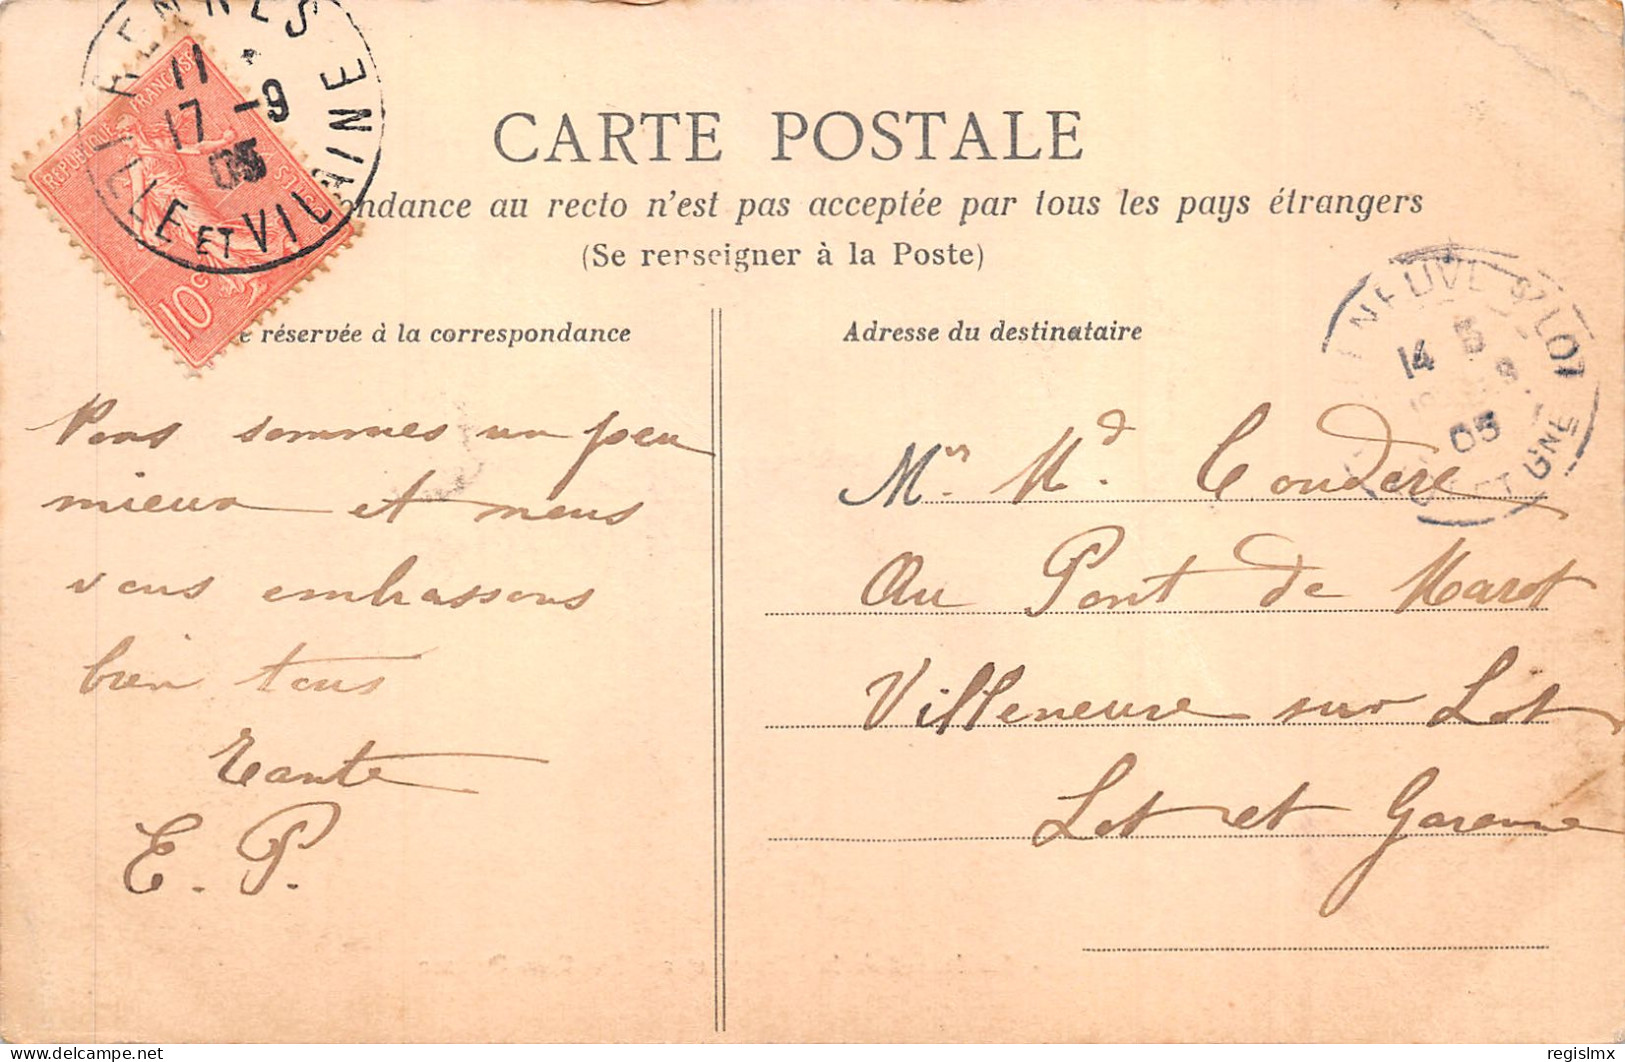 RENNES
11
17 -9
05
ILLE ET VILAINE
REPUBLIQUE FRANCAISE
POSTES
10c
CARTE POSTALE
ondance au recto n'est pas acceptée par tous les pays étrangers
(Se renseigner à la Poste)
e réservée à la correspondance
Adresse du destinataire
NEUVE S/ LOT
14 5
05
ET GNE
Nous sommes un peu
mieux et nous
vous embrassons
bien tous
Tante
E. P.
Mr Md. Couderc
Au Pont de Marot
Villeneuve sur Lot
Lot et Garonne
delcampe.net
regislmx